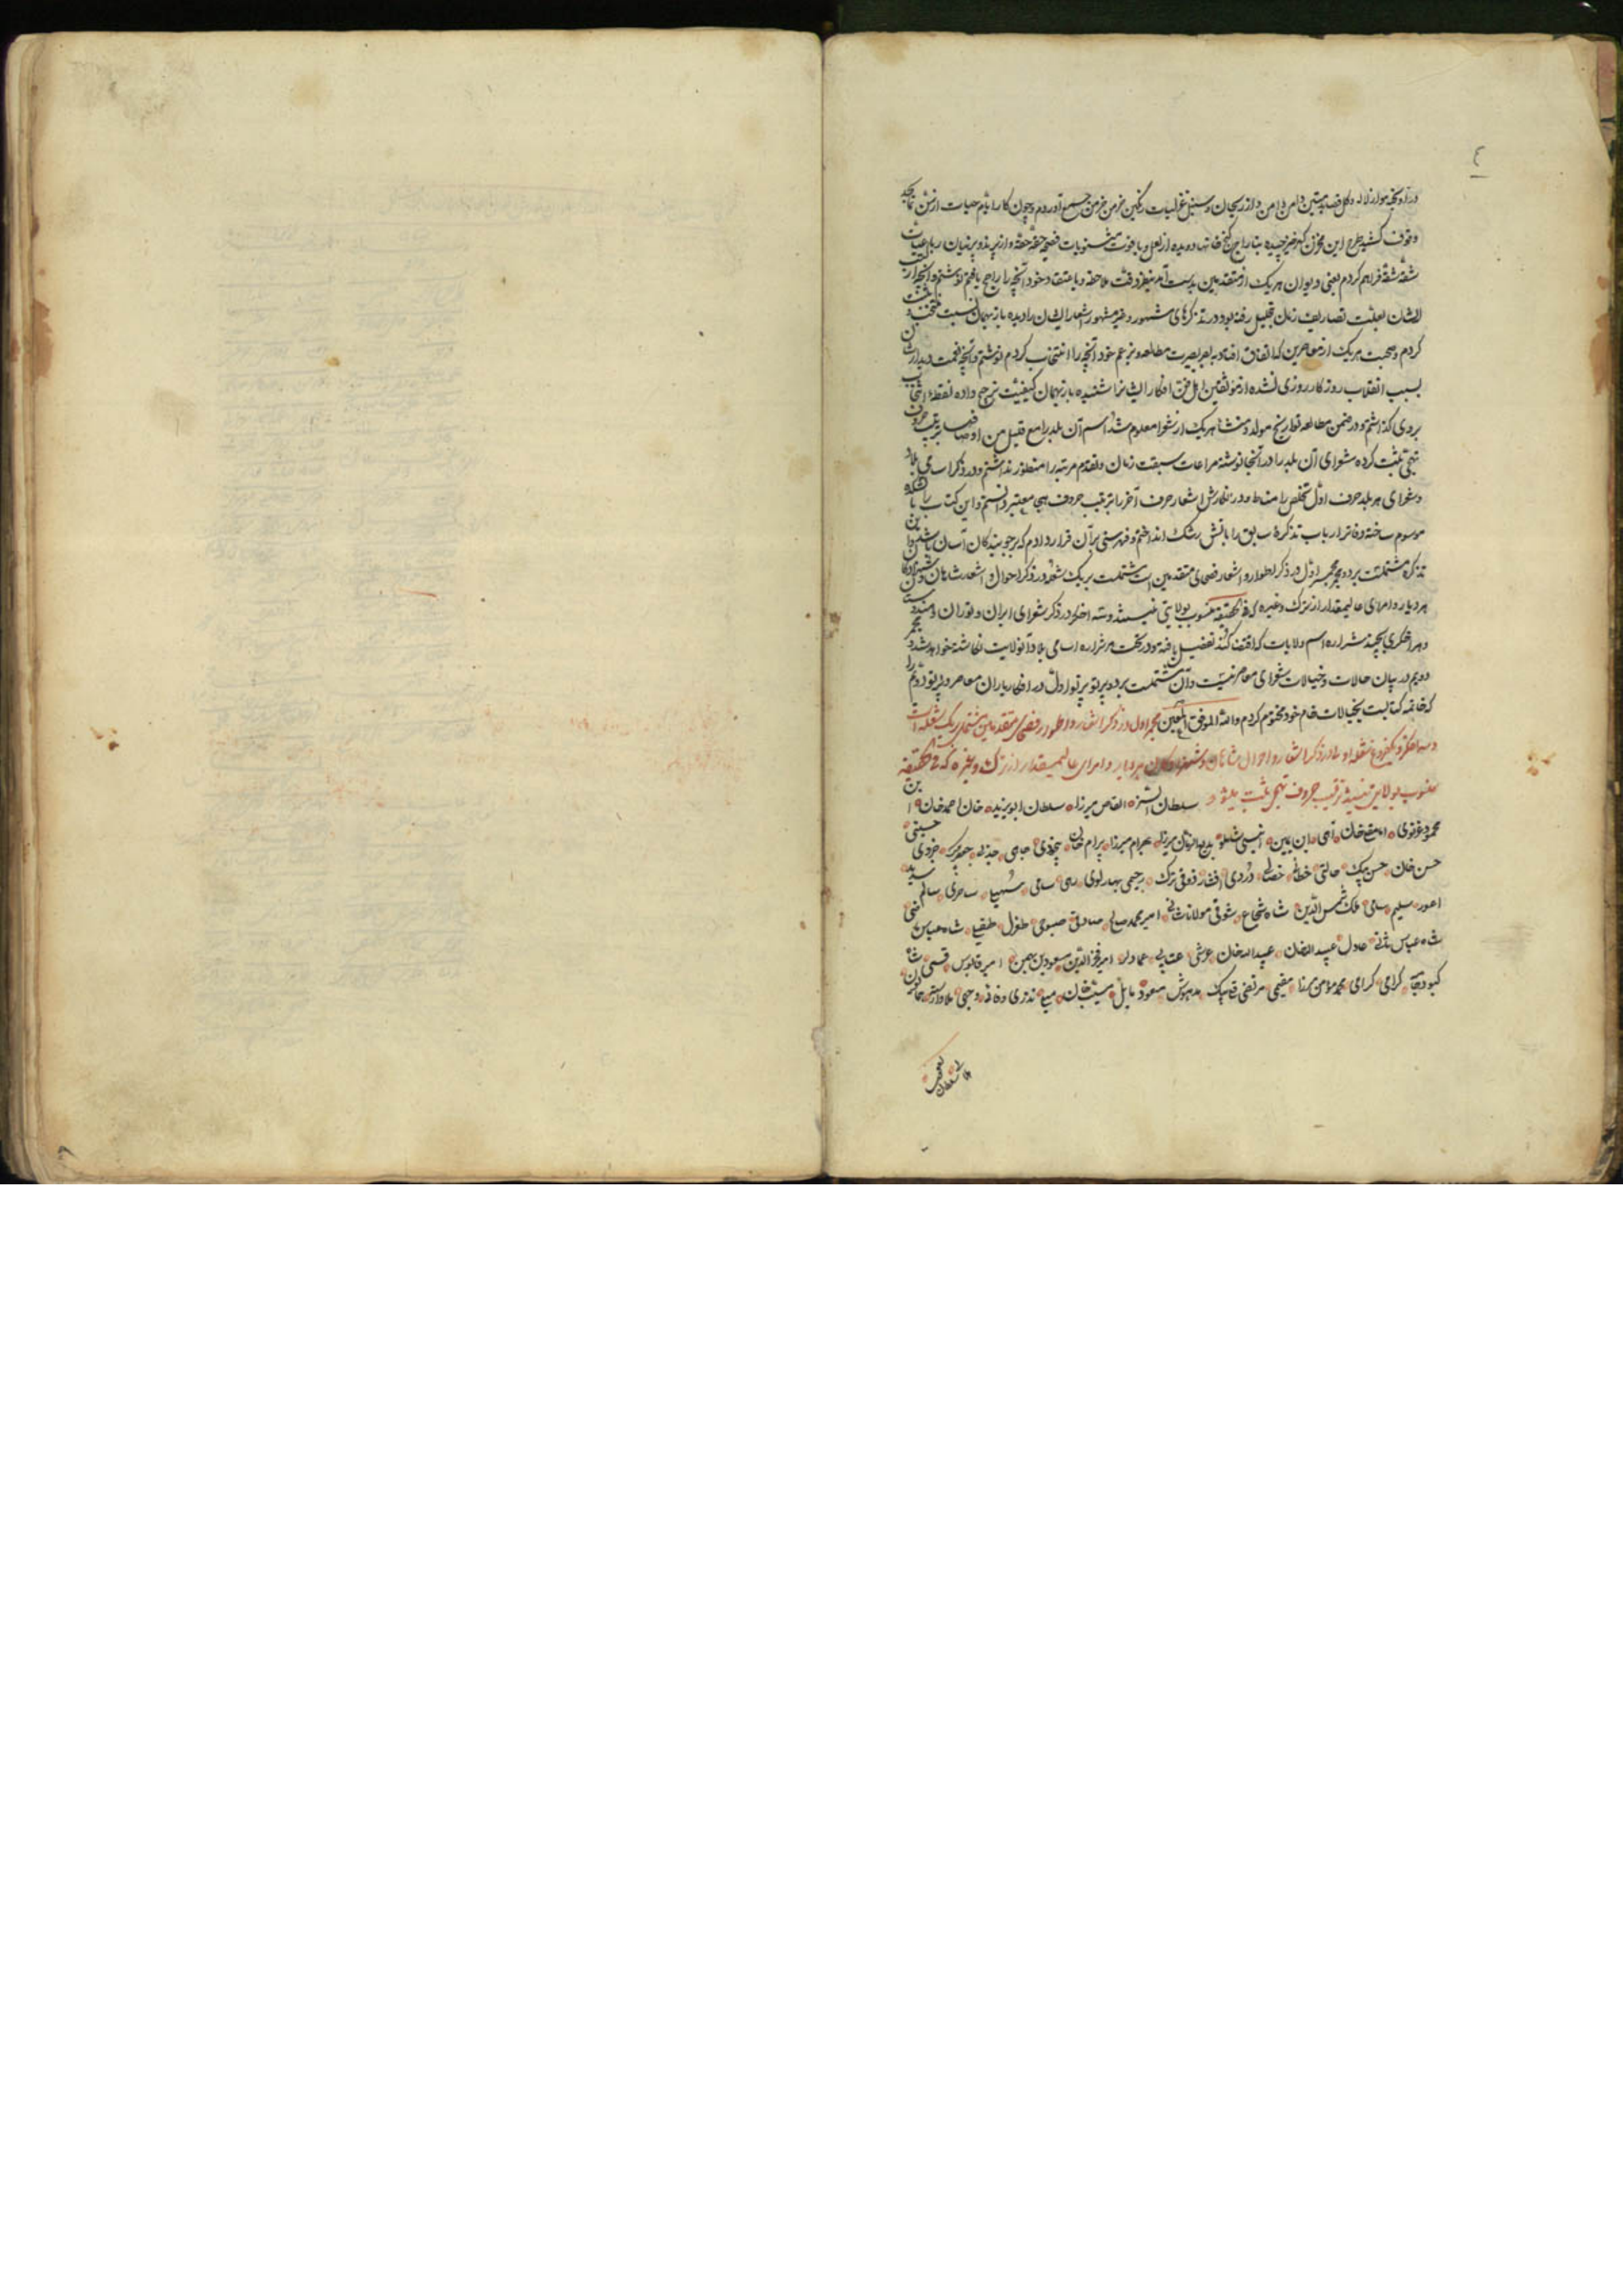 ٤
درآویخته و از لاله و گل قصاید متین دامن دامن و از ریحان و سنبل غزلیات رنگین خرمن خرمن جمع آوردم و چون کار ایام حیات از شش
وقوف کشید طرح این مخزن گهرخیز چیده بتاراج گنج خانها دویده از لعل و یاقوت مثنویات فصیح حقه حقه و از پرند و پرنیان رباعیات
شقه شقه فراهم کردم یعنی دیوان هر یک از متقدمین بدست آمد بنظر دقت ملاحظه و باعتقاد خود آنچه را راجح یافتم نوشتم و آنچه از
ایشان بعلت تصاریف زمان بتحلیل رفته بود در تذکرهای مشهور و غیر مشهور اشعار ایشان را دیده باز بهمان نسبت منتخب
کردم و صحبت هر یک از معاصرین که اتفاق افتاد به بصر بصیرت مطالعه و بزعم خود آنچه را انتخاب کردم نوشتم و آنچه قسمت دیدار ایشان
بسبب انقلاب روزکار روزی نشده از موثقین اهل فن افکار ایشانرا شنیده باز بهمان کیفیت ترجیح داده نقطه انتخاب
بروی گذاشتم و در ضمن مطالعه تواریخ مولد و منشا هر یک از شعرا معلوم شد اسم آن بلد را مع قلیل من اوصافها بترتیب حروف
تهجی ثبت کرده شعرای آن بلد را در آنجا نوشته مراعات سبقت زمان و تقدم مرتبه را منظور نداشتم و در ذکر اسامی بلاد
و شعرای هر بلد حرف اول تخلص را مناط و در نگارش اشعار حرف آخر را بترتیب حروف تهجی معتبر دانستم و این کتاب را بآتشکده
موسوم ساخته دفاتر ارباب تذکره سابق را بآتش رشک انداختم و فهرستی بر آن قرار دادم که بر جویندگان آسان باشد و این
تذکره مشتملست بر دو مجمر مجمر اول در ذکر اطوار و اشعار فصحای متقدمین است مشتملست بر یک شعله در ذکر احوال و اشعار شاهان و شهزادگان
هر دیار و امرای عالیمقدار از ترک و غیره که فی الحقیقه منسوب بولایتی نیستند و سه اخگر در ذکر شعرای ایران و توران و هندوستان
و هر اخگری بچند شراره اسم ولایات که اقتضا کند تفصیل یافته و در تحت هر شراره اسامی بلاد آنولایت نگاشته خواهد شد و مجمر
دویم در بیان حالات و خیالات شعرای معاصرینست و آن مشتملست بر دو پرتو پرتو اول در افکار یاران معاصر و پرتو دویم را
که خاتمه کتابست بخیالات خام خود مختوم کردم والله الموفق المعین مجمر اول در ذکر اشعار و اطوار فصحای متقدمین مشتمل بر یک شعله است
و سه اخگر و یکفروغ شعله اولی در ذکر اشعار و احوال شاهان و شهزادگان هر دیار و امرای عالیمقدار از ترک و غیره که فی الحقیقه
منسوب بولایتی نیستند بترتیب حروف تهجی ثبت میشود سلطان اتسز القاص میرزا سلطان ابویزید خان احمد خان
محمود غزنوی امامقلیخان آهی ابن یمین انیسی شاملو بدیع الزمان میرزا بهرام میرزا بیرام خان بیخودی جامی جذبی جعفر بیک
حسن خان حسن بیک حالتی خطائی خصالی دردی افشار ذوقی ترک رحیمی بهارلوی رهی سامی سهیلیا ساحری سالم
اعور سلیم سامی ملک شمس الدین شاه شجاع شوقی مولانا شانی امیر محمد صالح صادقی صبوحی طغرل طفیلی شاه عباس
شاه عباس ثانی عادل عبید الله خان عبد الله خان عرشی عتابی عماد امیر فخر الدین مسعود بن بهمن امیر قابوس قسمی
کبود جامه کرامی کرامی محمد مؤمن میرزا مقیمی مرتضی قلی بیک مدهوش مسعود مایل مسیب خان مسیح نذری وفا
یعقوب